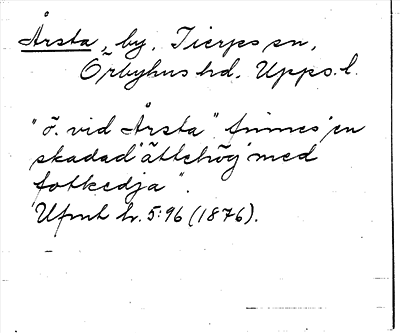 Årsta, by, Tierps sn,
Örbyhus hd, Upps. l.
"ö. vid Årsta" finnes 'en
skadad 'ättehög' med
fotkedja".
Ufmt h. 5:96 (1876).